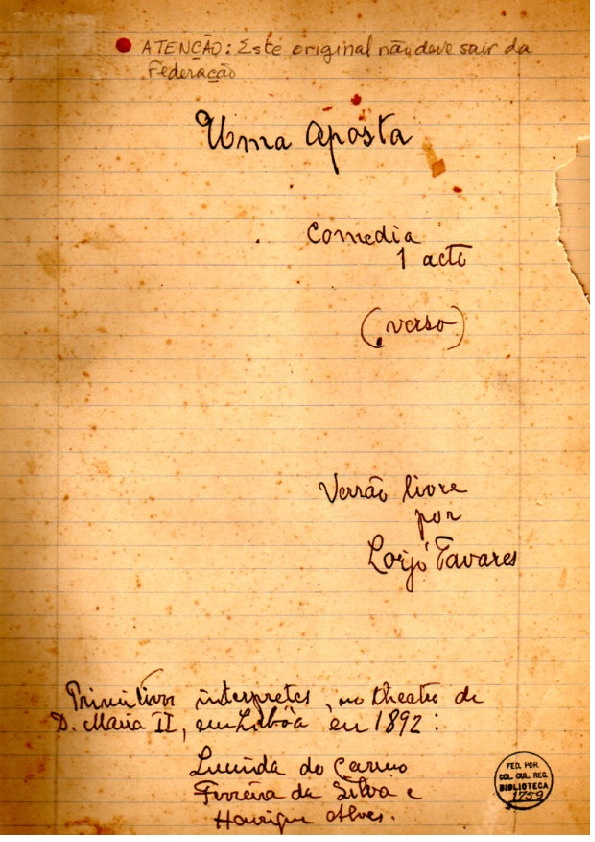 ATENÇÃO: Este original não deve sair da
Federação
Uma aposta
Comedia
1 acto
(verso)
Versão livre
por
Lorjó Tavares
Primitivos interpretes, no theatro de
D. Maria II, em Lisbôa en 1892:
Lucinda do Carmo
Ferreira da Silva e
Henrique Alves.
FED. POR.
COL. CUL. REC.
BIBLIOTECA
1759